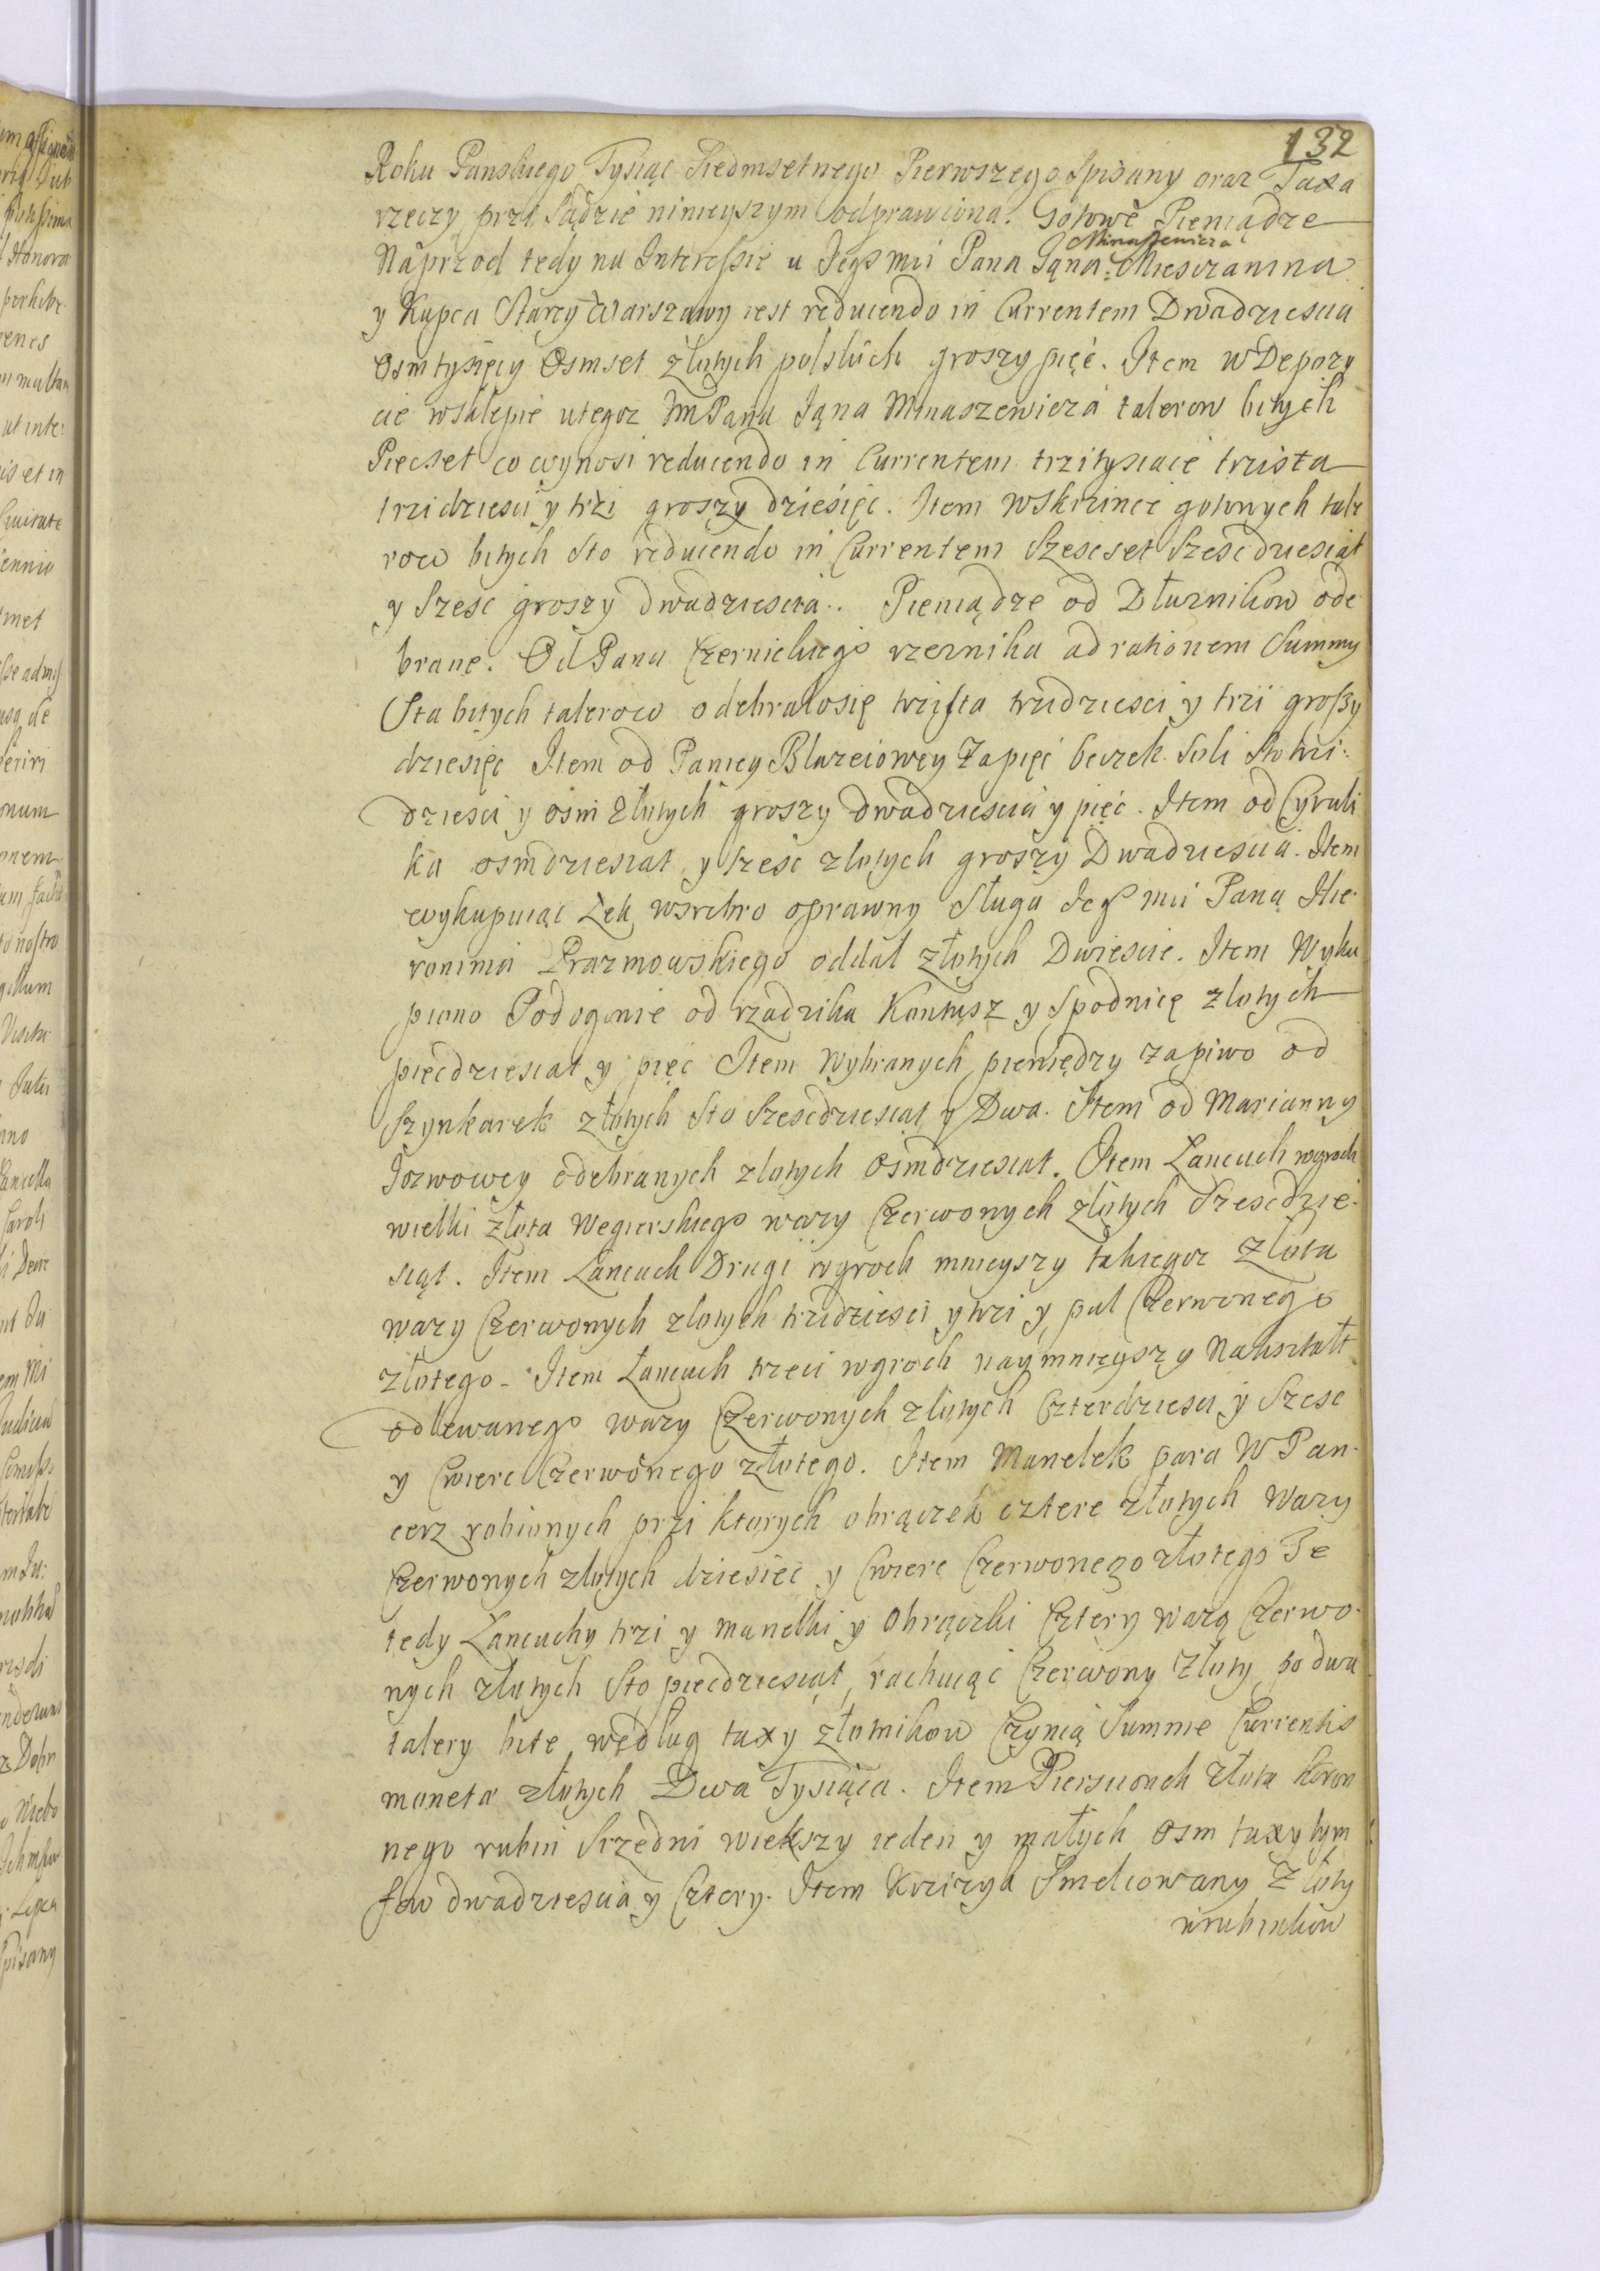 132
Roku Panskiego Tysiąc Siedmsetnego Pierwszego Spisany oraz Taxa
rzeczy przi Sądzie ninieyszym odprawiona. Gotowe Pieniądze
Minaszewicza
Náprzod tedy na Interessie u Jegº mci Pana Jąna Miesczanina
y Kupca Starey Warszawy iest reducendo in Currentem Dwadziescia
Osm tysięcy Osmset złotych polskich groszy pięć. Item w Depozy
cie w sklepie u tegoz Jm Pana Jąna Minaszewicza talerow bitych
Piecset co wynosi reducendo in Currentem trzitysiące trzista
trzidziesci y trzi groszy dziesięc. Item w Skrzince gotowych tale
row bitych Sto reducendo in Currentem Szescset Szescdziesiąt
y Szesc groszy dwadziescia. Pieniądze od Dłuznikow ode
brane. Od Pana Czernickiego rzeznika ad rationem Summy
Sta bitych talerow odebrałosię trzista trzidziesci y trzi groszy
dziesięc Item od Paniey Blazeiowey Za pięć beczek Soli Sto trzi:
dziesci y osm złotych groszy dwadziescia y pięc. Item od Cyruli
ka osmdziesiat y szesc zlotych groszy Dwadziescia. Item
wykupuiąc Zek w srebro oprawny Sługa Jegº mci Paną Hie
ronima Prazmowskiego oddał złotych Dwiescie. Item Wyku
piono Podogonie od rzadzika Kontusz y Spodnicę zlotych
pięcdziesiat y pięc Item Wybranych pieniędzy za piwo od
Szynkarek złotych Sto Szescdziesiat y Dwa. Item od Marianny
Jozwowey odebranych zlotych osmdziesiat. Item Lancuch w groch
wielki złota Wegierskiego wazy Czerwonych złotych Szescdzie
siąt. Item Lancuch Drugi w groch mnieyszy takiegoz Złota
wazy Czerwonych zlotych trzidziesci y trzi y puł Czerwonego
złotego. Item Lancuch trzeci w groch naymnieyszy Nakształt
odlewanego wazy Czerwonych zlotych Czterdziesci y Szesc
y Cwierc Czerwonego złotego. Item Manelek para W Pan-
cerz robionych przi ktorych obrączek cztere złotych Wazy
Czerwonych zlotych dziesiec y Cwierc Czerwonego złotego Te
tedy Lancuchy trzi y manelki y Obrączki Cztery wazą Czerwo-
nych złotych Sto piecdziesiąt, rachuiąc Czerwony Złoty, po dwa
talery bite, według taxy złotnikow Czynią Summe Currentis
moneta złotych Dwa Tysiąca. Item Piersionek złota Koron
nego rubin Srzedni wiekszy ieden y małych osm taxy tym
fow dwadziescia y Cztery. Item Krzizyk Smelcowany Złoty
w rubinkow